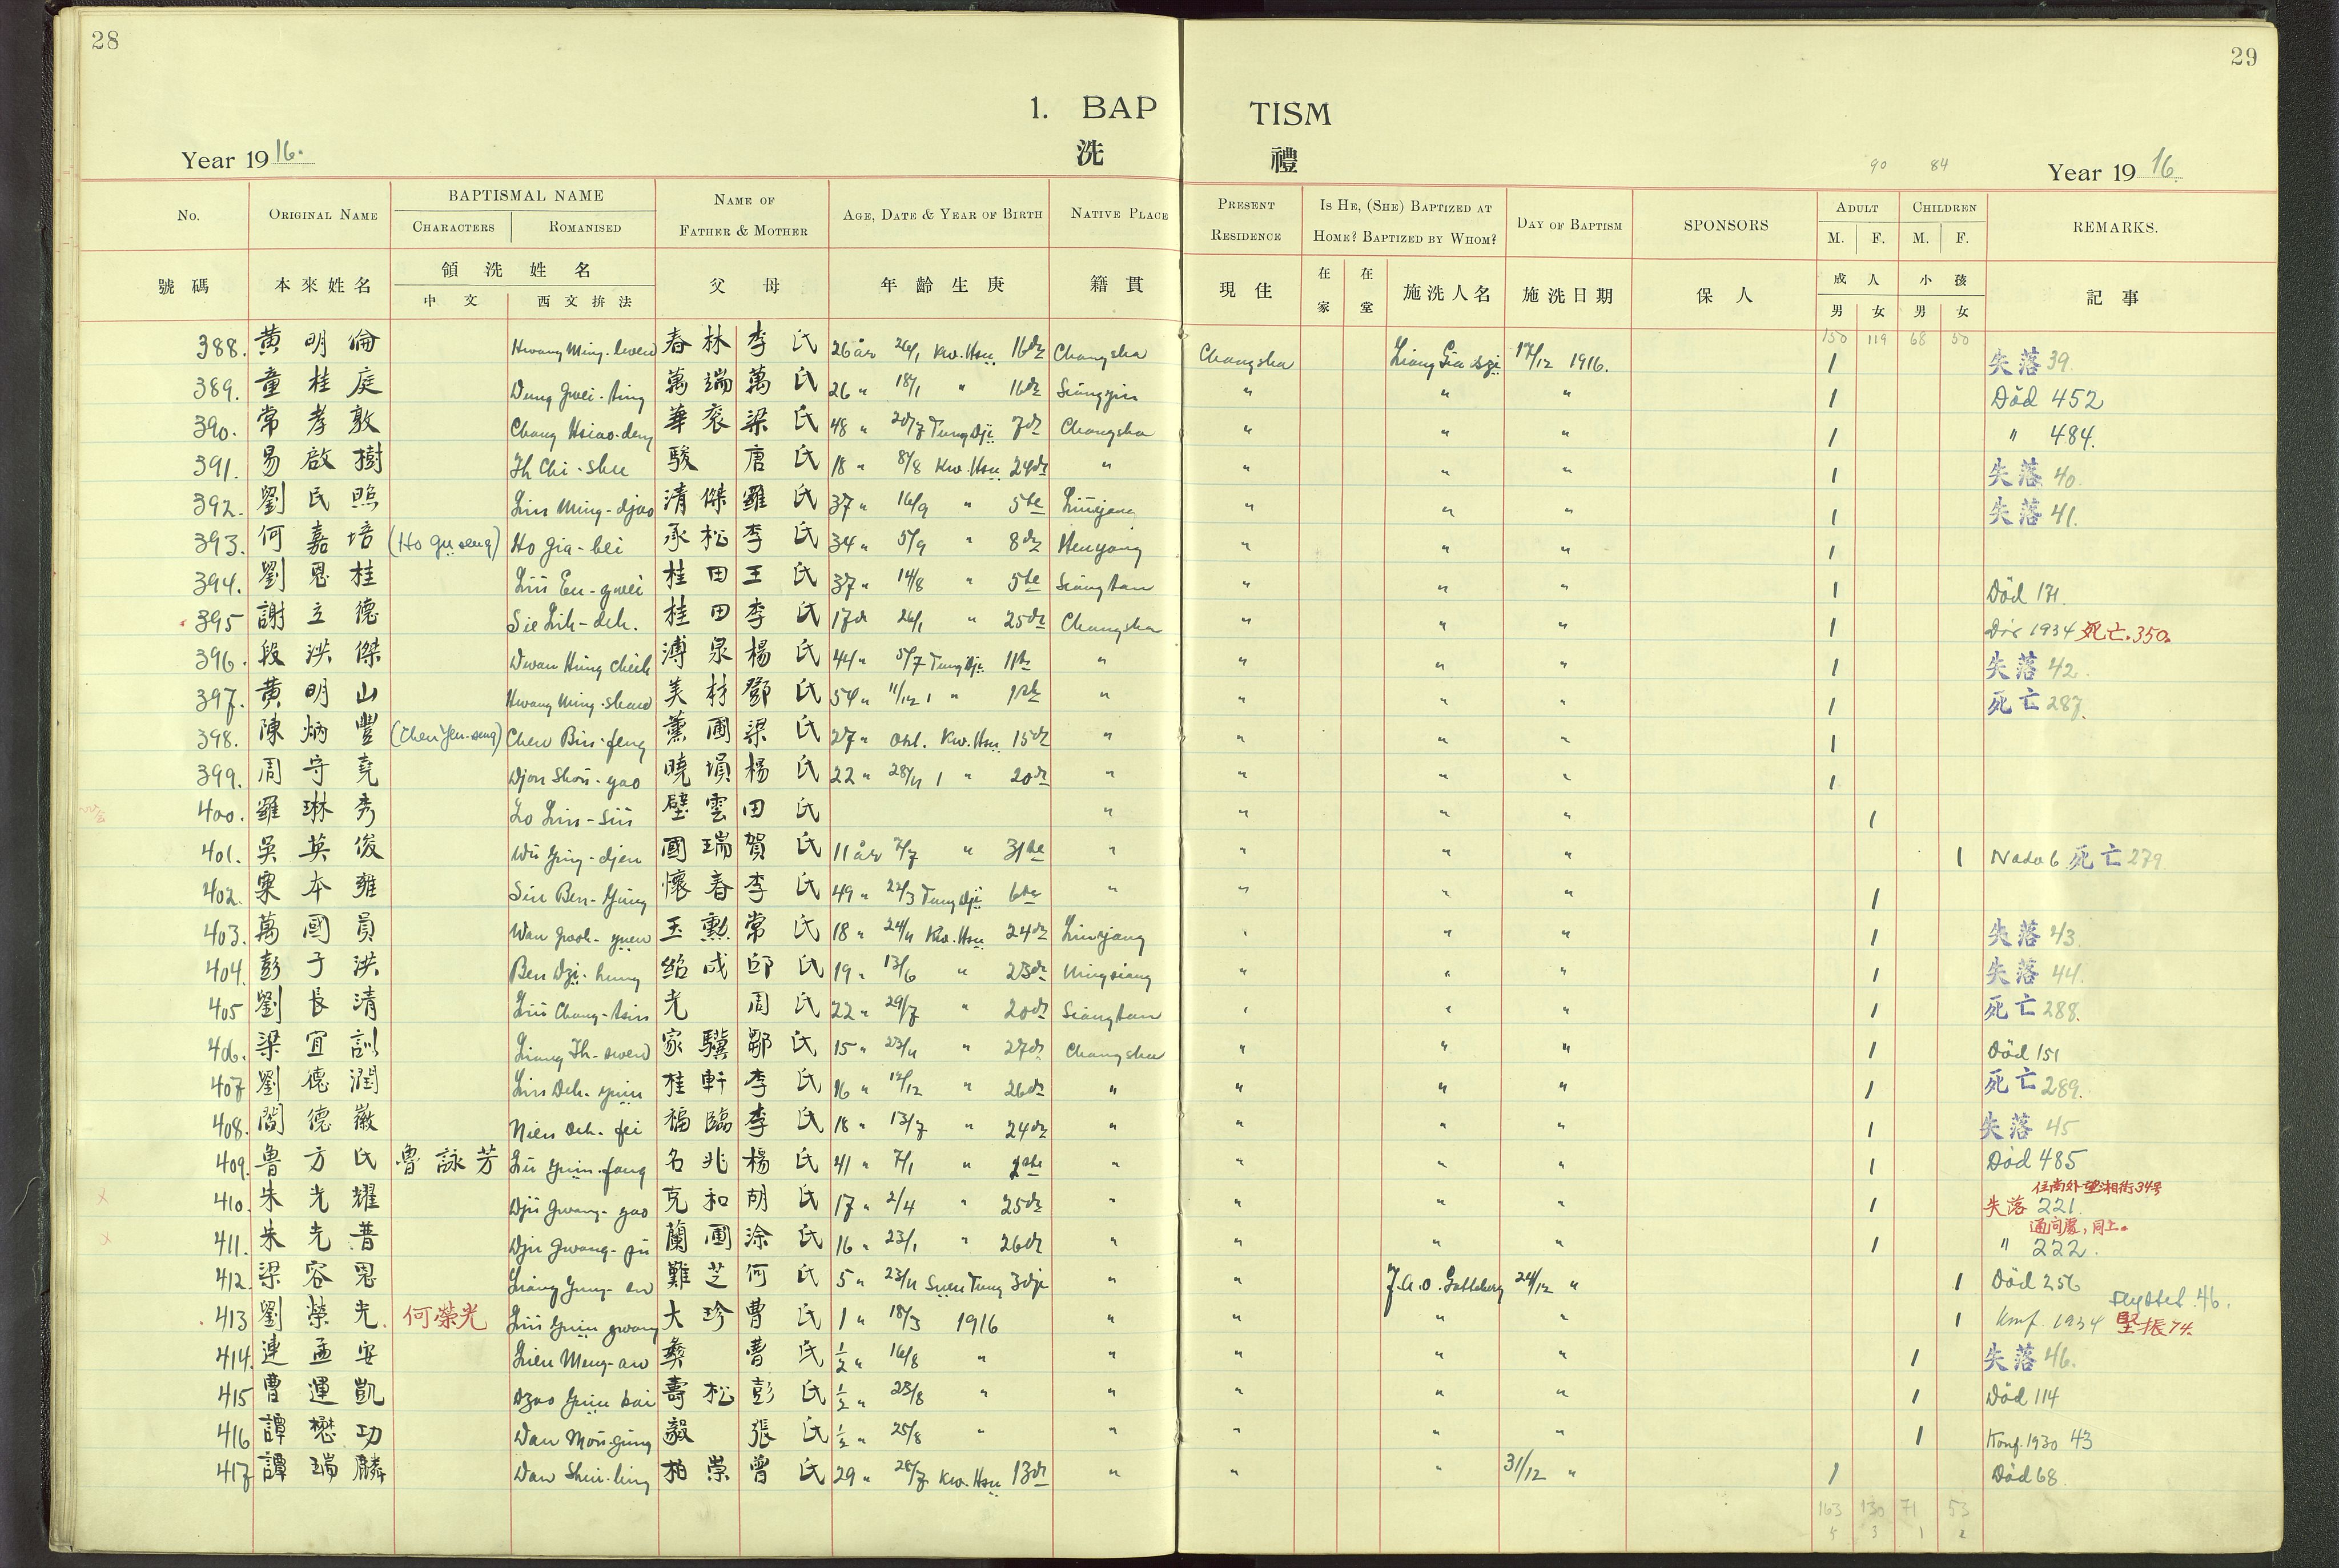 28
29
1. BAP TISM
洗 禮
Year 19 16.
90 84
Year 19 16.
No. ORIGINAL NAME BAPTISMAL NAME NAME OF FATHER & MOTHER AGE, DATE & YEAR OF BIRTH NATIVE PLACE PRESENT RESIDENCE IS HE, (SHE) BAPTIZED AT HOME? BAPTIZED BY WHOM? DAY OF BAPTISM SPONSORS ADULT CHILDREN REMARKS.
CHARACTERS ROMANISED M. F. M. F.
號碼 本來姓名 領洗姓名 父母 年齡生庚 籍貫 現住 在家 在堂 施洗人名 施洗日期 保人 成人 小孩 記事
中文 西文拚法 男 女 男 女
150 119 68 50
388. 黄明倫 Hwang Ming-lwen 春林 李氏 26 år 26/1 Kw. Hsu 16de Changsha Changsha 17/12 1916. 1 失落 39.
389. 童桂庭 Dung Gwei-ting 萬端 萬氏 26 " 18/1 " 16de Siangyin " " " 1 Död 452
390. 常孝敦 Chang Hsiao-den 華衮 梁氏 48 " 20/7 Tung Dji 7de Changsha " " " 1 " 484.
391. 易啟樹 Ih Chi-shu 駿 唐氏 18 " 8/8 Kw. Hsu 24de " " " " 1 失落 40.
392. 劉民照 Liu Ming-djao 清傑 羅氏 37 " 16/9 " 5te " " " 1 失落 41.
393. 何嘉培 (Ho Gu seng) Ho Gia-bei 承松 李氏 34 " 5/9 " 8de Henyang " " " 1
394. 劉恩桂 Liu En-gwei 桂田 王氏 37 " 14/8 " 5te Siangtan " " " 1 Död 171.
395 謝立德 Sie Lih-deh. 桂田 李氏 17 " 26/1 " 25de Changsha " " " 1 1934 死亡.350.
396. 段洪傑 Dwan Hung Chieh 溥泉 楊氏 44 " 5/7 Tung Dji 11te " " " " 1 失落 42.
397. 黄明山 Hwang Ming-shan 美材 鄧氏 54 " 11/12 " " " " " 1 死亡 287.
398. 陳炳豐 (Chen Yen-seng) Chen Bin-feng 薰圃 梁氏 27 " Kw. Hsu 15de " " " " 1
399. 周守堯 Djou Shou-yao 曉塤 楊氏 22 " 28/11 " 20de " " " " 1
400. 羅琳秀 Lo Lin-siu 壁雲 田氏 " " " " 1
401. 吳英俊 Wu Ying-djen 國瑞 賀氏 11 år 7/7 " 31te " " " " 1 死亡 279.
402. 粟本雍 Siu Ben-Yung 懷春 李氏 49 " 22/3 Tung Dji 6te " " " " 1
403. 萬國員 Wan Gwoh-yuen 玉勳 常氏 18 " 24/11 Kw. Hsu 24de " " " 1 失落 43.
404. 彭子洪 Ben Dzi-hung 紹成 邱氏 19 " 13/6 " 23de Ningsiang " " " 1 失落 44.
405 劉長清 Liu Chang-tsin 光 周氏 22 " 29/7 " 20de Siangtan " " " 1 死亡 288.
406. 梁宜訓 Liang Ih-swen 家驥 鄒氏 15 " 23/11 " 27de Changsha " " " 1 Död 151
407 劉德潤 Liu Deh-yuin 桂軒 李氏 16 " 12/12 " 26de " " " " 1 死亡 289.
408. 閻德徽 Nien Deh-fei 福臨 李氏 18 " 13/7 " 24de " " " " 1 失落 45
409. 魯方氏 魯詠芳 Lu Yuin-fang 名兆 楊氏 41 " 7/1 " " " " " 1 Död 485
410. 朱光耀 Dju Gwang-yao 克和 胡氏 17 " 2/4 " 25de " " " " 1 失落 221.
住南外望湘街34号
411. 朱光普 Dju Gwang-pu 蘭圃 涂氏 16 " 23/1 " 26de " " " " 1 " 222.
412. 梁容恩 Liang Yung-en 難芝 何氏 5 " 23/11 Suen Tung 3dje " " 24/12 " 1 Död 256
413 劉榮光. 何榮光 Liu Yuin gwang 大珍 曹氏 1 " 18/3 1916 " " " " 1 Konf. 1934 flyttet 46. 堅振74.
414. 連孟安 Lien Meng-an 彝 曹氏 1/2 " 16/8 " " " " " 1 失落 46.
415 曹運凱 Dzao Yuin kai 壽松 彭氏 1/2 " 23/8 " " " " " 1 Död 114
416 譚懋功 Dan Mou-gung 毅 張氏 1/2 " 25/8 " " " " " 1 Konf. 1930 43
417 譚瑞麟 Dan Shui-ling 柏崇 曾氏 29 " 28/7 Kw. Hsu 13de " " " 31/12 " 1 Död 68.
163 130 71 53
5 3 1 2